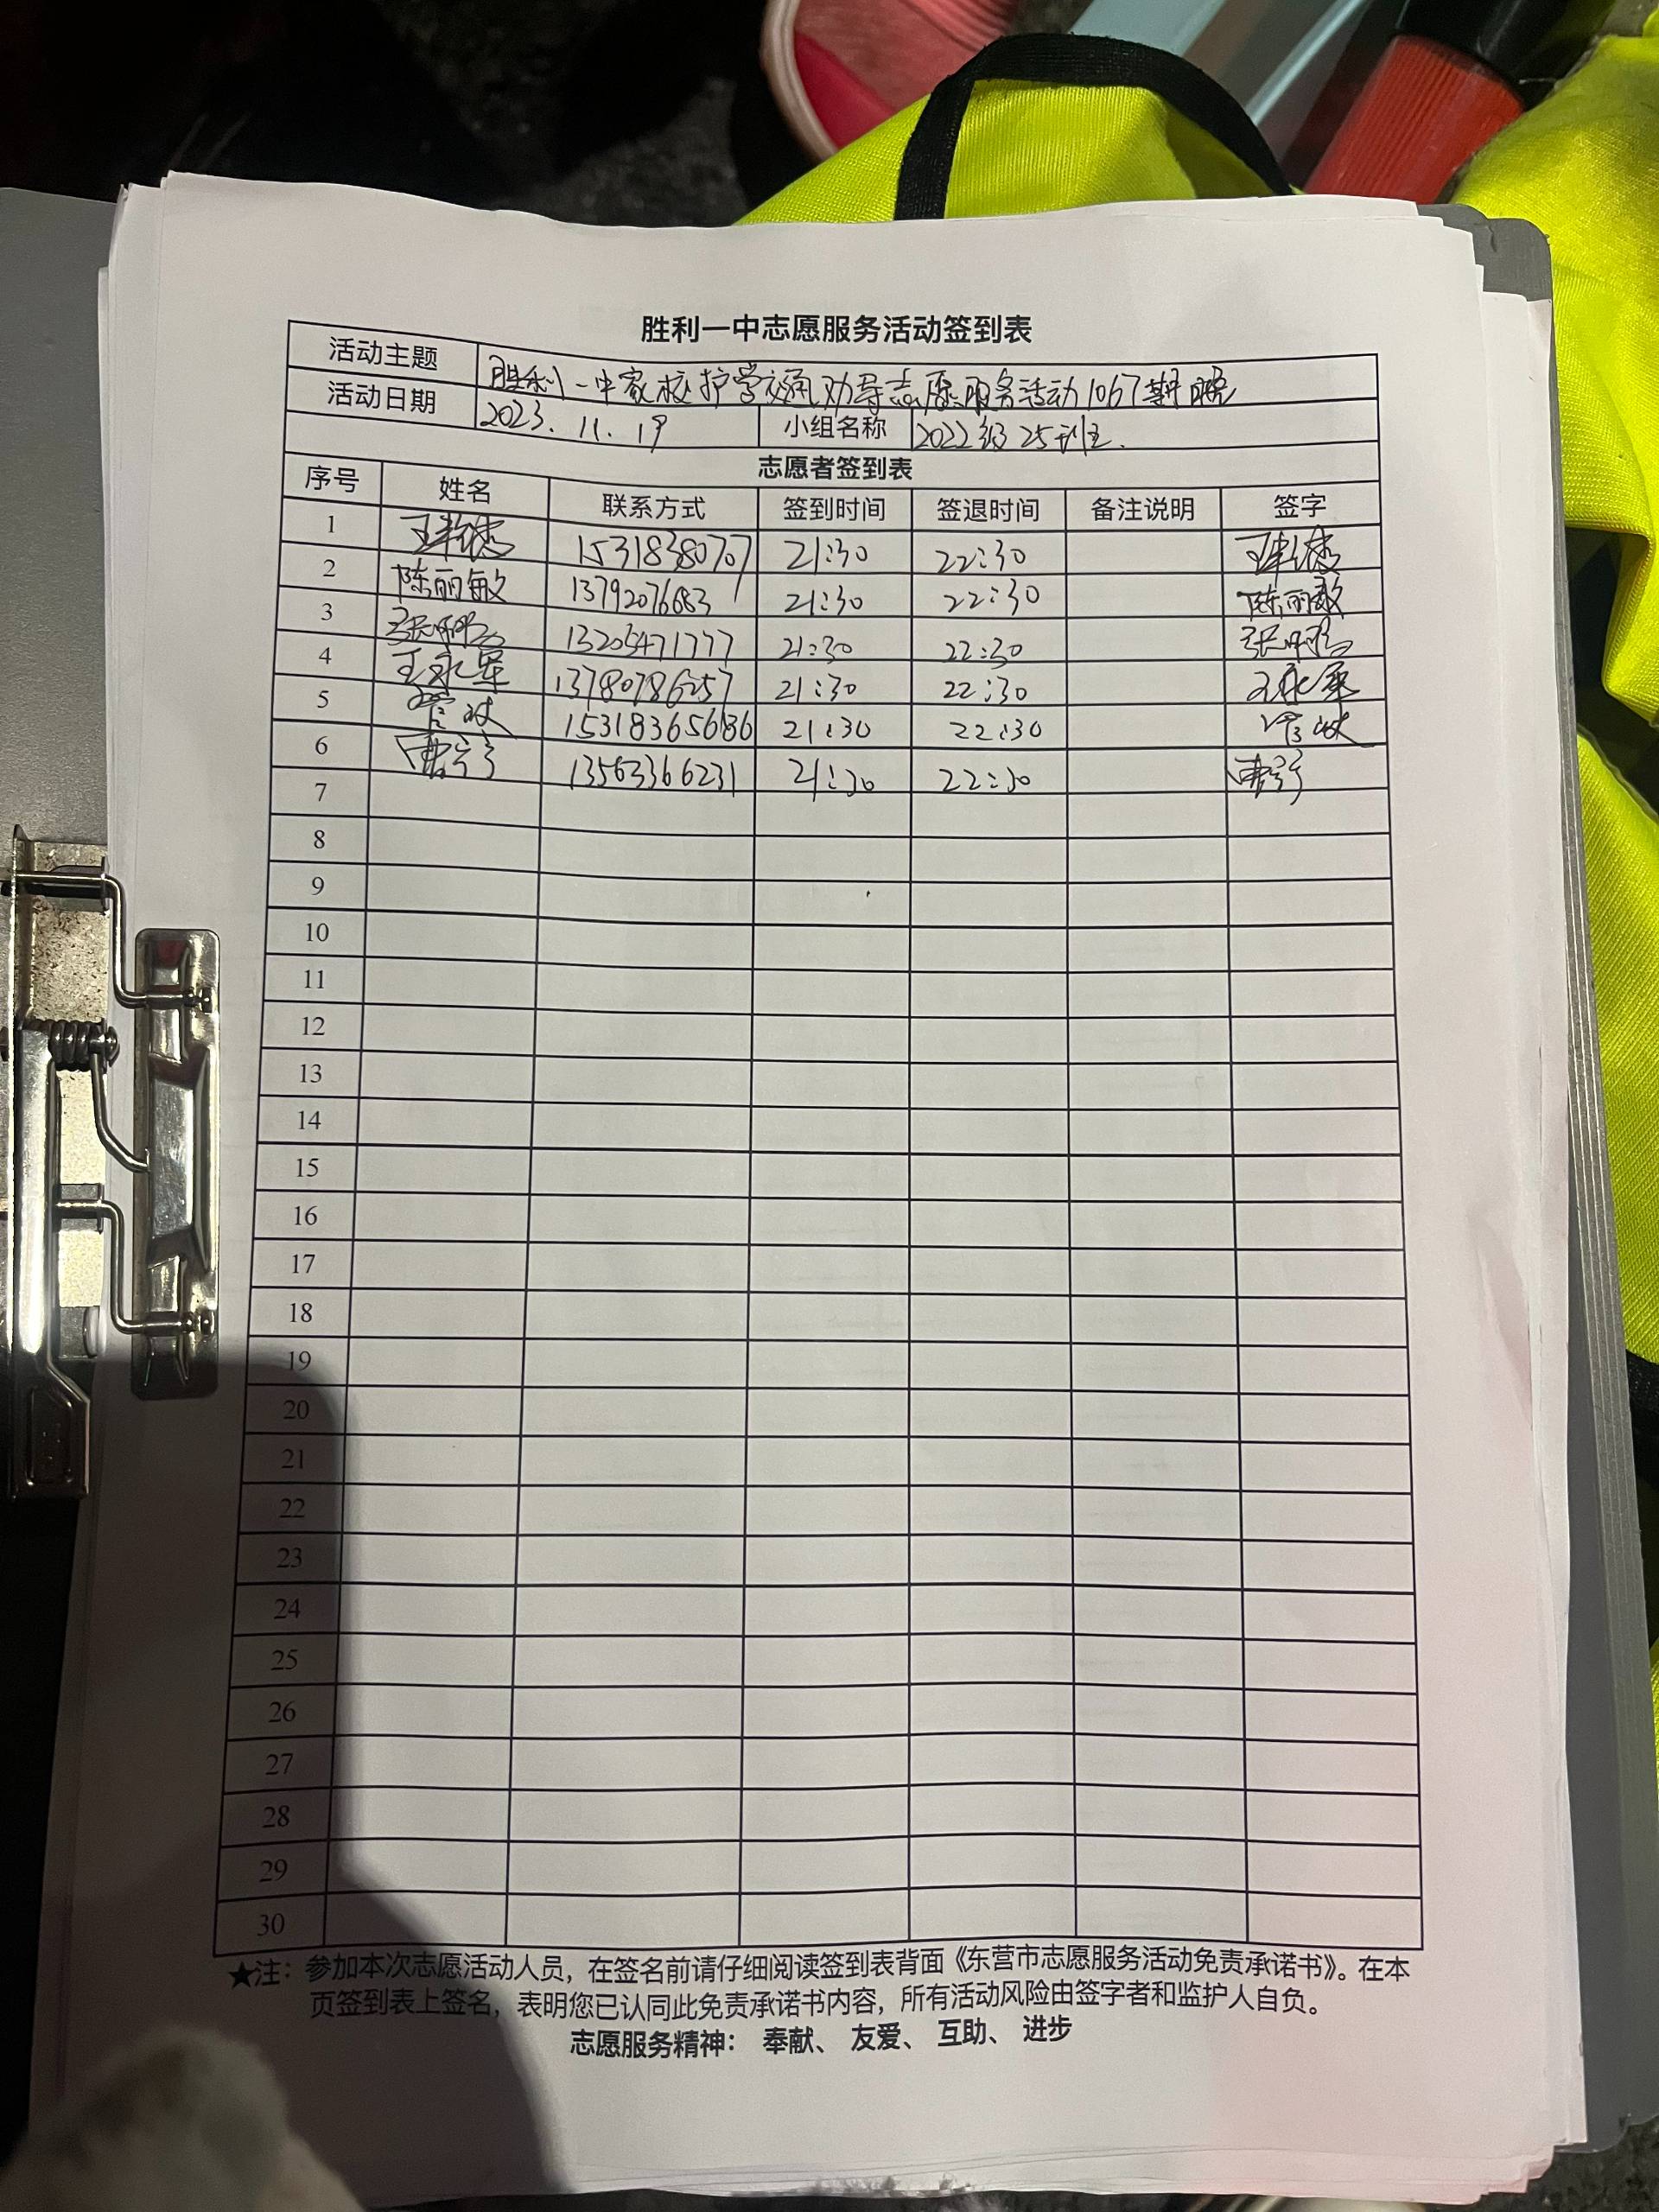 胜利一中志愿服务活动签到表
活动主题 胜利一中家校护学交通劝导志愿服务活动1067期晚
活动日期 2023.11.19 小组名称 2022级25班
志愿者签到表
序号 姓名 联系方式 签到时间 签退时间 备注说明 签字
1 15318380707 21:30 22:30
2 陈丽敏 13792076683 21:30 22:30 陈丽敏
3 13205471777 21:30 22:30
4 王永军 13780786257 21:30 22:30 王永军
5 15318365686 21:30 22:30
6 13563366231 21:30 22:30
7
8
9
10
11
12
13
14
15
16
17
18
19
20
21
22
23
24
25
26
27
28
29
30
★注：参加本次志愿活动人员，在签名前请仔细阅读签到表背面《东营市志愿服务活动免责承诺书》。在本
页签到表上签名，表明您已认同此免责承诺书内容，所有活动风险由签字者和监护人自负。
志愿服务精神： 奉献、 友爱、 互助、 进步